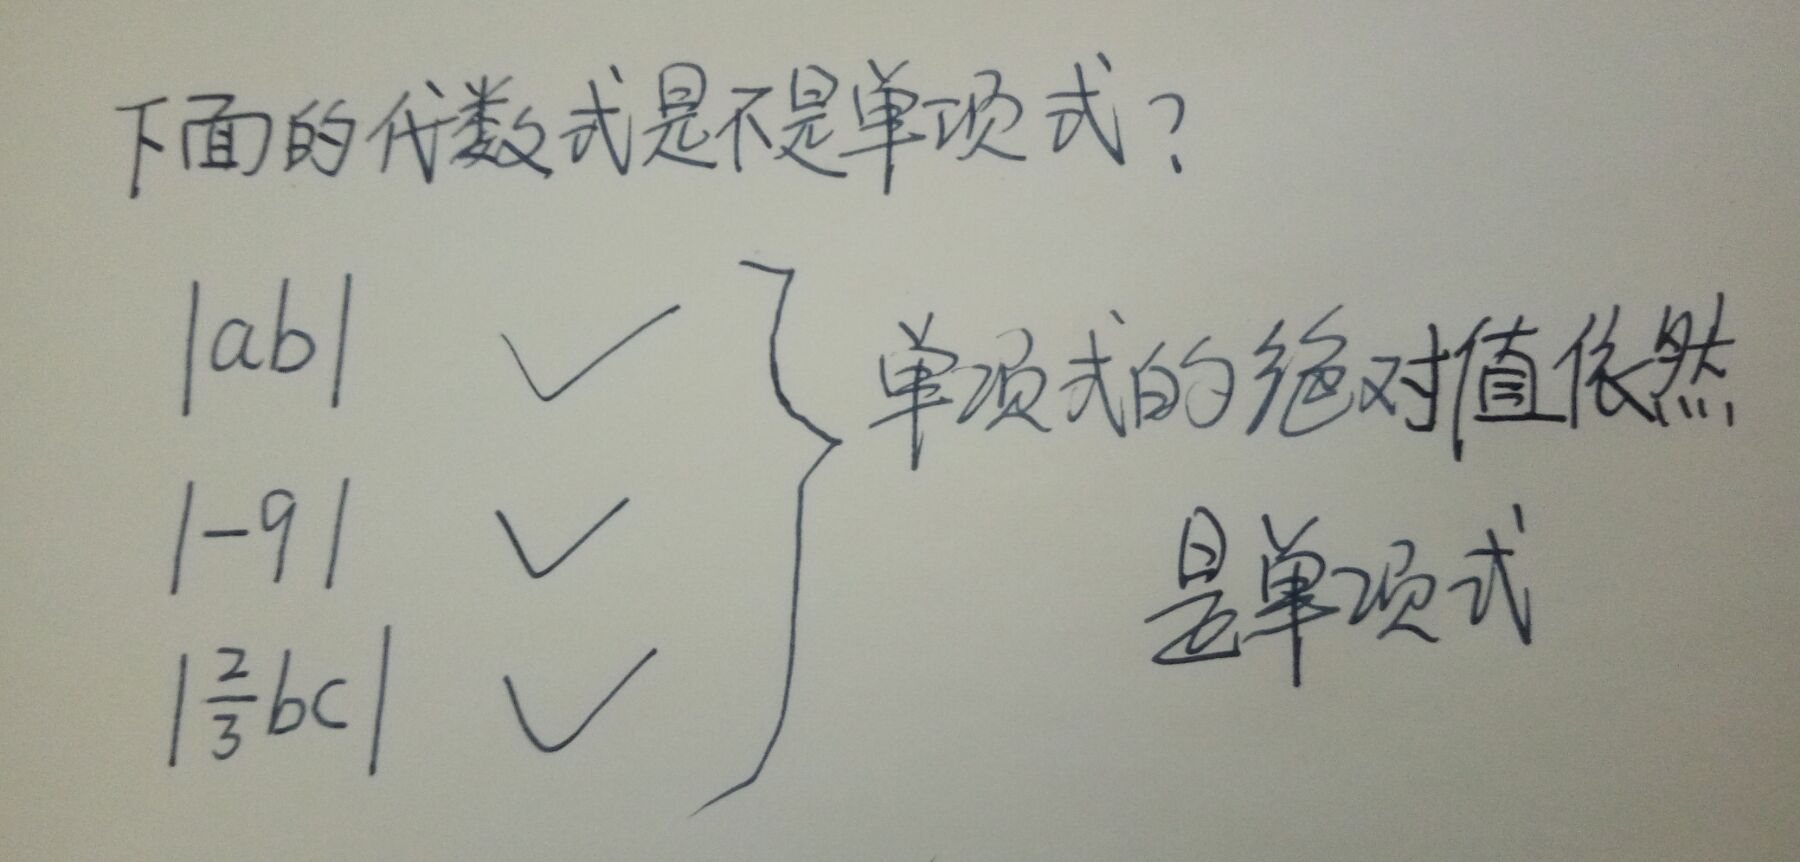 下面的代数式是不是单项式?
|ab| ✓
|-9| ✓
|2/3 bc| ✓
单项式的绝对值依然
是单项式